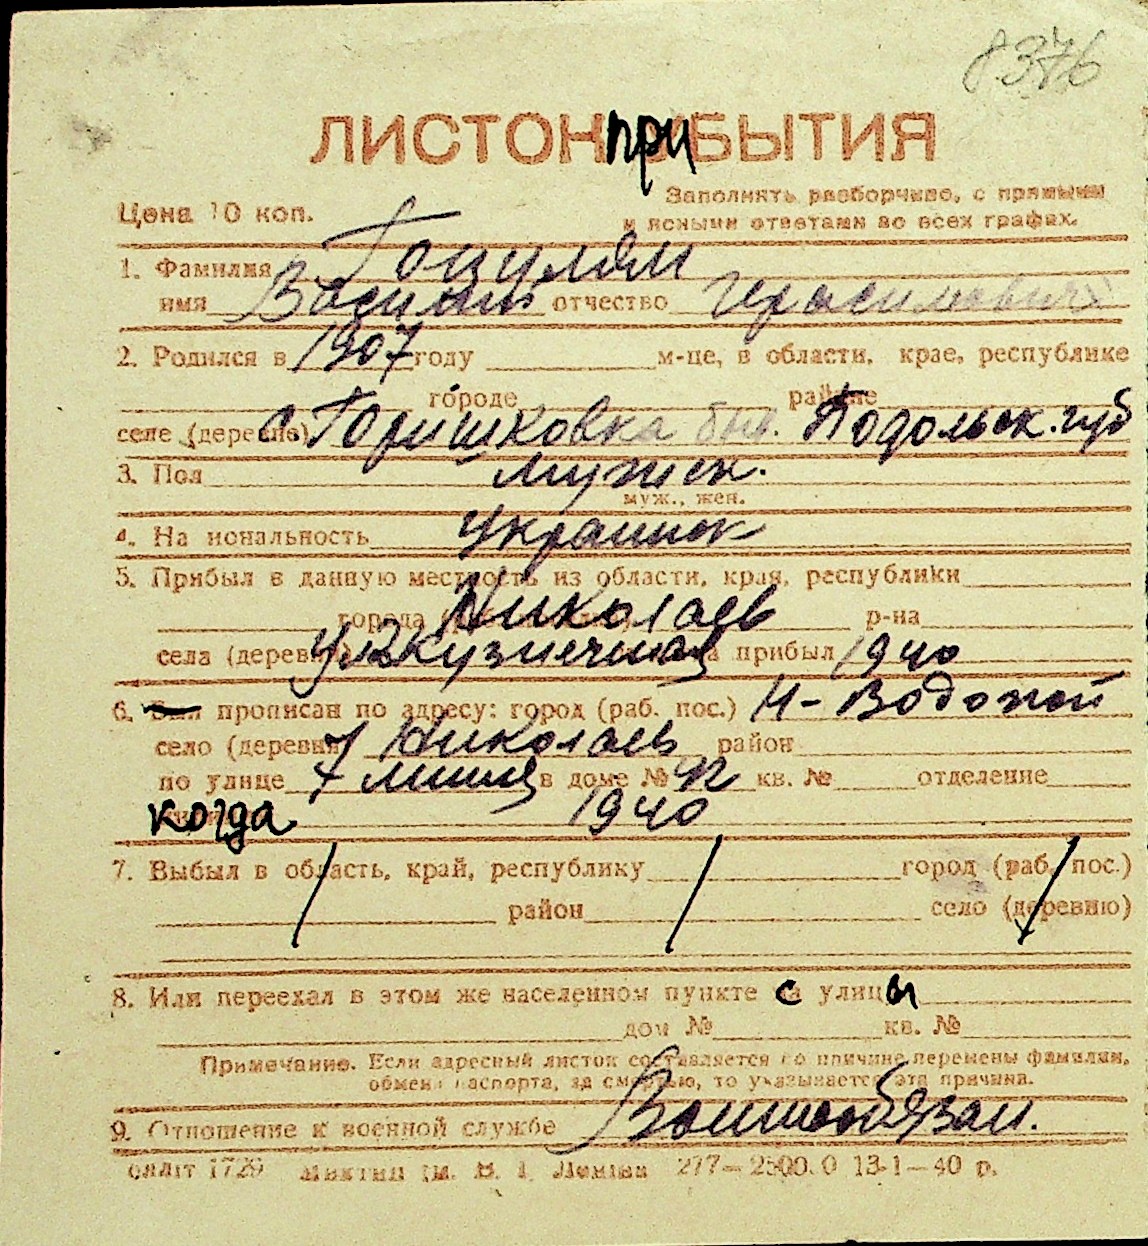 8376
ЛИСТОК ПРИБЫТИЯ
Цена 10 коп.
Заполнять разборчиво, с прямыми
и ясными ответами во всех графах.
1. Фамилия Гоцулям
имя Василий отчество Герасимович
2. Родился в 1907 году м-це, в области, крае, республике
городе районе
селе (деревне) с. Горишковка быв. Подольск. губ
3. Пол мужск.
муж., жен.
4. Национальность Украинец
5. Прибыл в данную местность из области, края, республики
города Николаев р-на
села (деревни) ул 2 Кузнечная прибыл 1940
6. прописан по адресу: город (раб. пос.) Н-Водопой
село (деревня) Николаев район
по улице 7 линия в доме № 92 кв. № отделение
когда 1940
7. Выбыл в область, край, республику город (раб. пос.)
район село (деревню)
8. Или переехал в этом же населенном пункте с улицы
дом № кв. №
Примечание. Если адресный листок составляется по причине перемены фамилии,
обмена паспорта, за смертью, то указывается эта причина.
9. Отношение к военной службе Военнообязан.
1729 277—2500.0 13-1—40 р.